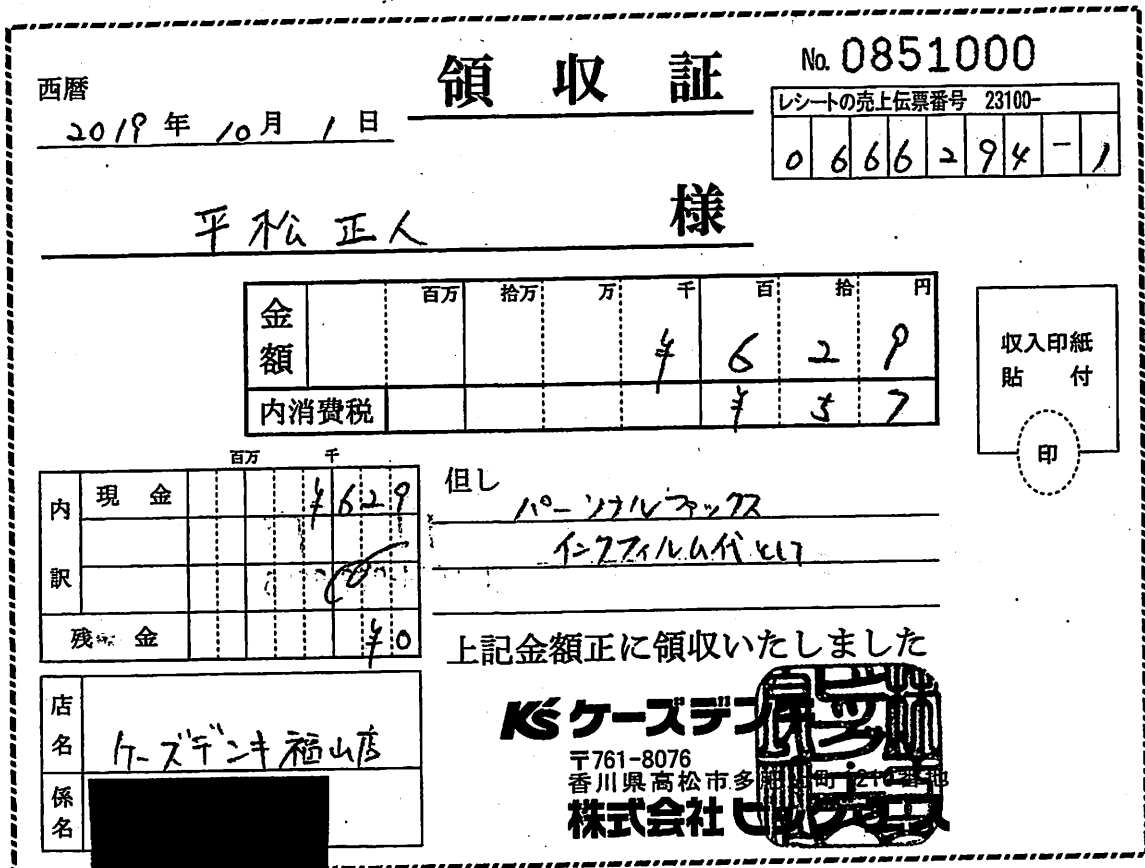 西暦
2019年 10月 1日
領収証
No. 0851000
レシートの売上伝票番号 23100-
0666294-1
平松正人 様
百万 拾万 万 千 百 拾 円
金額 ¥629
内消費税 ¥57
収入印紙
貼付
印
百万 千
内訳
現金 ¥629
残金 ¥0
但し パーソナルファックス
インクフィルム代として
上記金額正に領収いたしました
店名 ケーズデンキ福山店
係名
K's ケーズデンキ
〒761-8076
香川県高松市多
株式会社